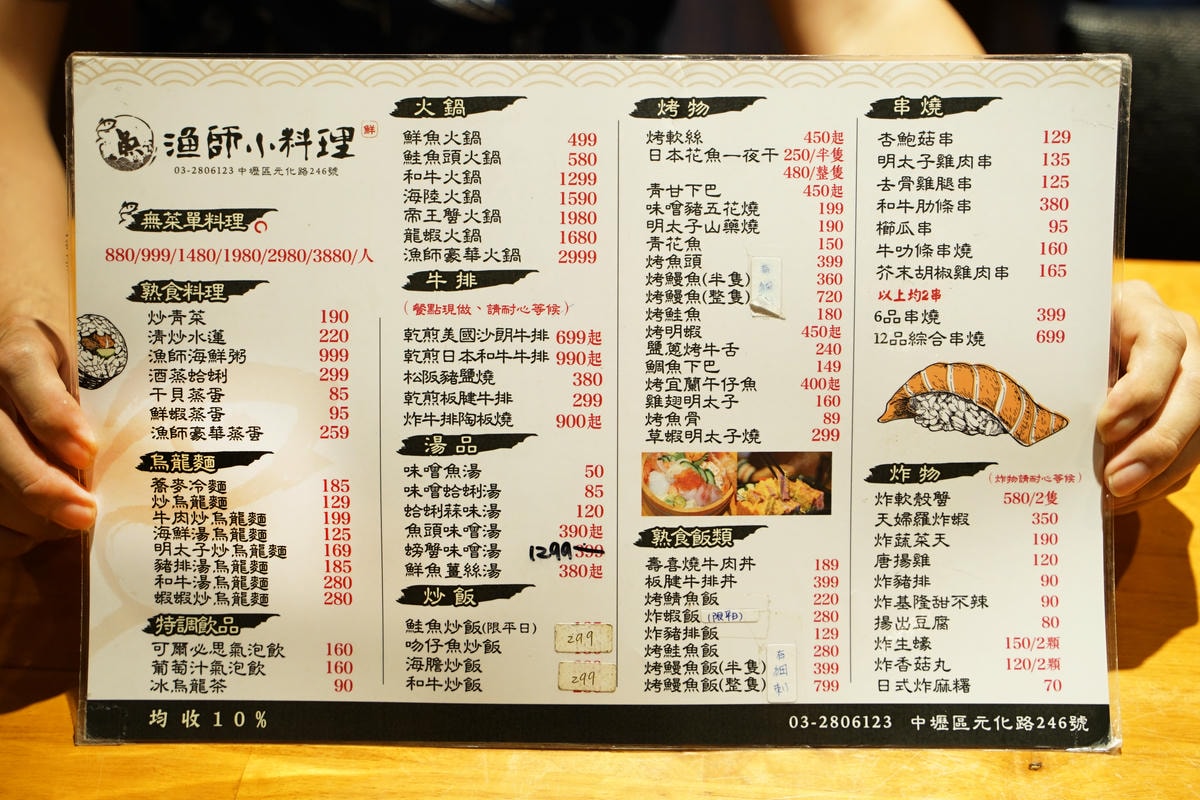 漁師小料理 鮮
03-2806123 中壢區元化路246號
無菜單料理
880/999/1480/1980/2980/3880/人
熟食料理
炒青菜 190
清炒水蓮 220
漁師海鮮粥 999
酒蒸蛤蜊 299
干貝蒸蛋 85
鮮蝦蒸蛋 95
漁師豪華蒸蛋 259
烏龍麵
蕎麥冷麵 185
炒烏龍麵 129
牛肉炒烏龍麵 199
海鮮湯烏龍麵 125
明太子炒烏龍麵 169
豬排湯烏龍麵 185
和牛湯烏龍麵 280
蝦蝦炒烏龍麵 280
特調飲品
可爾必思氣泡飲 160
葡萄汁氣泡飲 160
冰烏龍茶 90
火鍋
鮮魚火鍋 499
鮭魚頭火鍋 580
和牛火鍋 1299
海陸火鍋 1590
帝王蟹火鍋 1980
龍蝦火鍋 1680
漁師豪華火鍋 2999
牛排
(餐點現做、請耐心等候)
乾煎美國沙朗牛排 699起
乾煎日本和牛牛排 990起
松阪豬鹽燒 380
乾煎板腱牛排 299
炸牛排陶板燒 900起
湯品
味噌魚湯 50
味噌蛤蜊湯 85
蛤蜊蒜味湯 120
魚頭味噌湯 390起
螃蟹味噌湯 1299 399
鮮魚薑絲湯 380起
炒飯
鮭魚炒飯(限平日)
吻仔魚炒飯 299
海膽炒飯
和牛炒飯 299
烤物
烤軟絲 450起
日本花魚一夜干 250/半隻
480/整隻
青甘下巴 450起
味噌豬五花燒 199
明太子山藥燒 190
青花魚 150
烤魚頭 399
烤鰻魚(半隻) 360
烤鰻魚(整隻) 720
有細刺
烤鮭魚 180
烤明蝦 450起
鹽蔥烤牛舌 240
鯛魚下巴 149
烤宜蘭午仔魚 400起
雞翅明太子 160
烤魚骨 89
草蝦明太子燒 299
熟食飯類
壽喜燒牛肉丼 189
板腱牛排丼 399
烤鯖魚飯 220
炸蝦飯 (限平日) 280
炸豬排飯 129
烤鮭魚飯 280
烤鰻魚飯(半隻) 399
烤鰻魚飯(整隻) 799
有細刺
串燒
杏鮑菇串 129
明太子雞肉串 135
去骨雞腿串 125
和牛肋條串 380
櫛瓜串 95
牛肋條串燒 160
芥末胡椒雞肉串 165
以上均2串
6品串燒 399
12品綜合串燒 699
炸物 (炸物請耐心等候)
炸軟殼蟹 580/2隻
天婦羅炸蝦 350
炸蔬菜天 190
唐揚雞 120
炸豬排 90
炸基隆甜不辣 90
揚出豆腐 80
炸生蠔 150/2顆
炸香菇丸 120/2顆
日式炸麻糬 70
均收10%
03-2806123 中壢區元化路246號